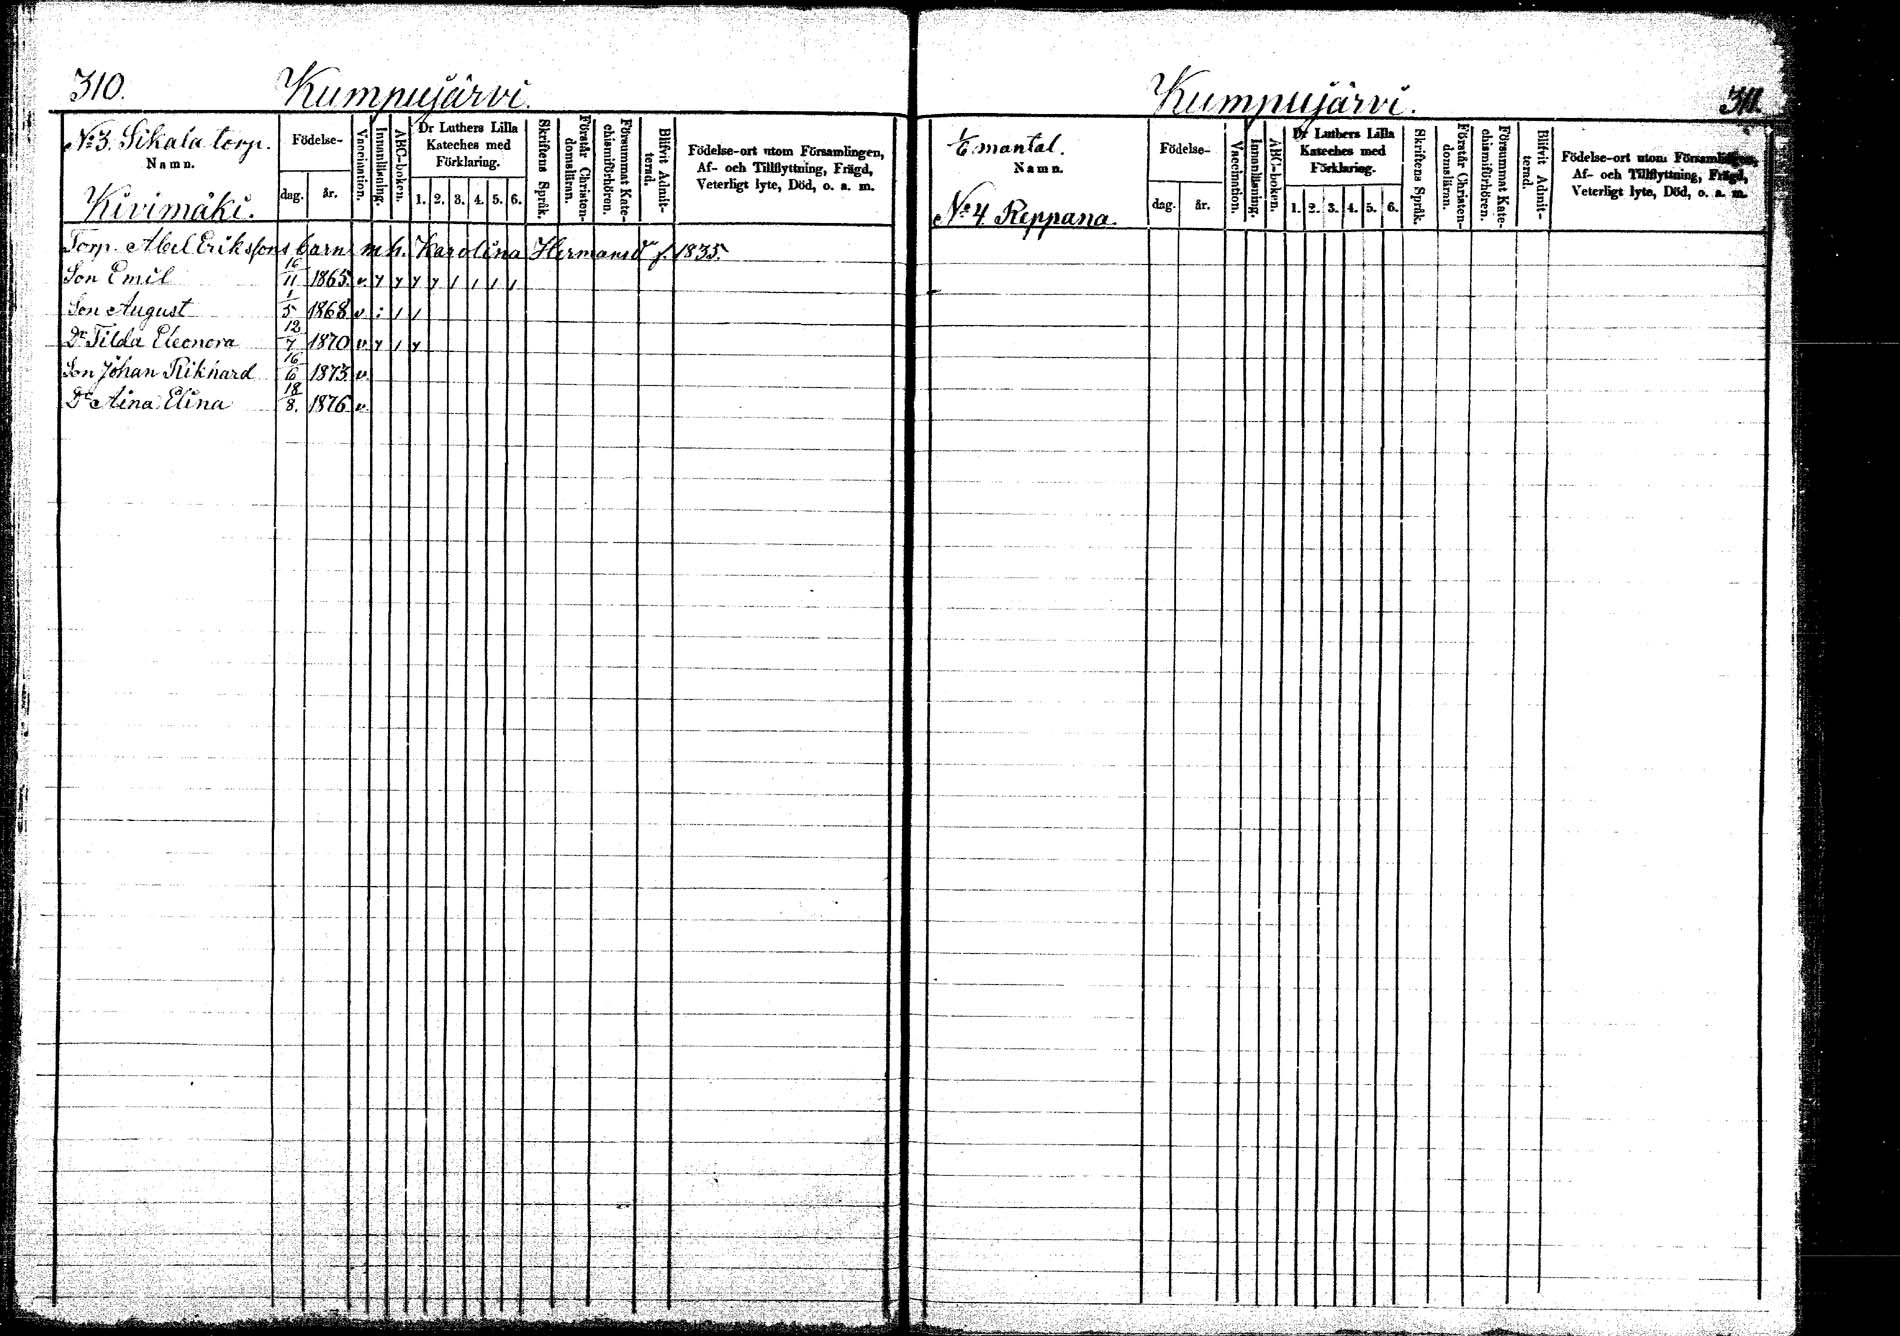 310. Kumpujärvi.
No 3. Sikala torp.
Namn.
Kivimäki.
Födelse-
dag. år.
Vaccination.
Innanläsning.
ABC-boken.
Dr Luthers Lilla
Kateches med
Förklaring.
1. 2. 3. 4. 5. 6.
Skriftens Språk.
Förstår Christen-
domsläran.
Försummat Kate-
chismiförhören.
Blifvit Admit-
terad.
Födelse-ort utom Församlingen,
Af- och Tillflyttning, Frägd,
Veterligt lyte, Död, o. s. m.
Torp. Abel Erikssons barn m h. Karolina Hermansd r f. 1835.
Son Emil 16/11 1865. v.
Son August 1/5 1868 v
Dr Tilda Eleonora 12/7 1870 v.
Son Johan Rikhard 16/6 1873. v.
Dr Aina Elina 18/8. 1876 v.
Kumpujärvi. 311.
mantal.
Namn.
No 4. Reppana.
Födelse-
dag. år.
Vaccination.
Innanläsning.
ABC-boken.
Dr Luthers Lilla
Kateches med
Förklaring.
1. 2. 3. 4. 5. 6.
Skriftens Språk.
Förstår Christen-
domsläran.
Försummat Kate-
chismiförhören.
Blifvit Admit-
terad.
Födelse-ort utom Församlingen,
Af- och Tillflyttning, Frägd,
Veterligt lyte, Död, o. s. m.